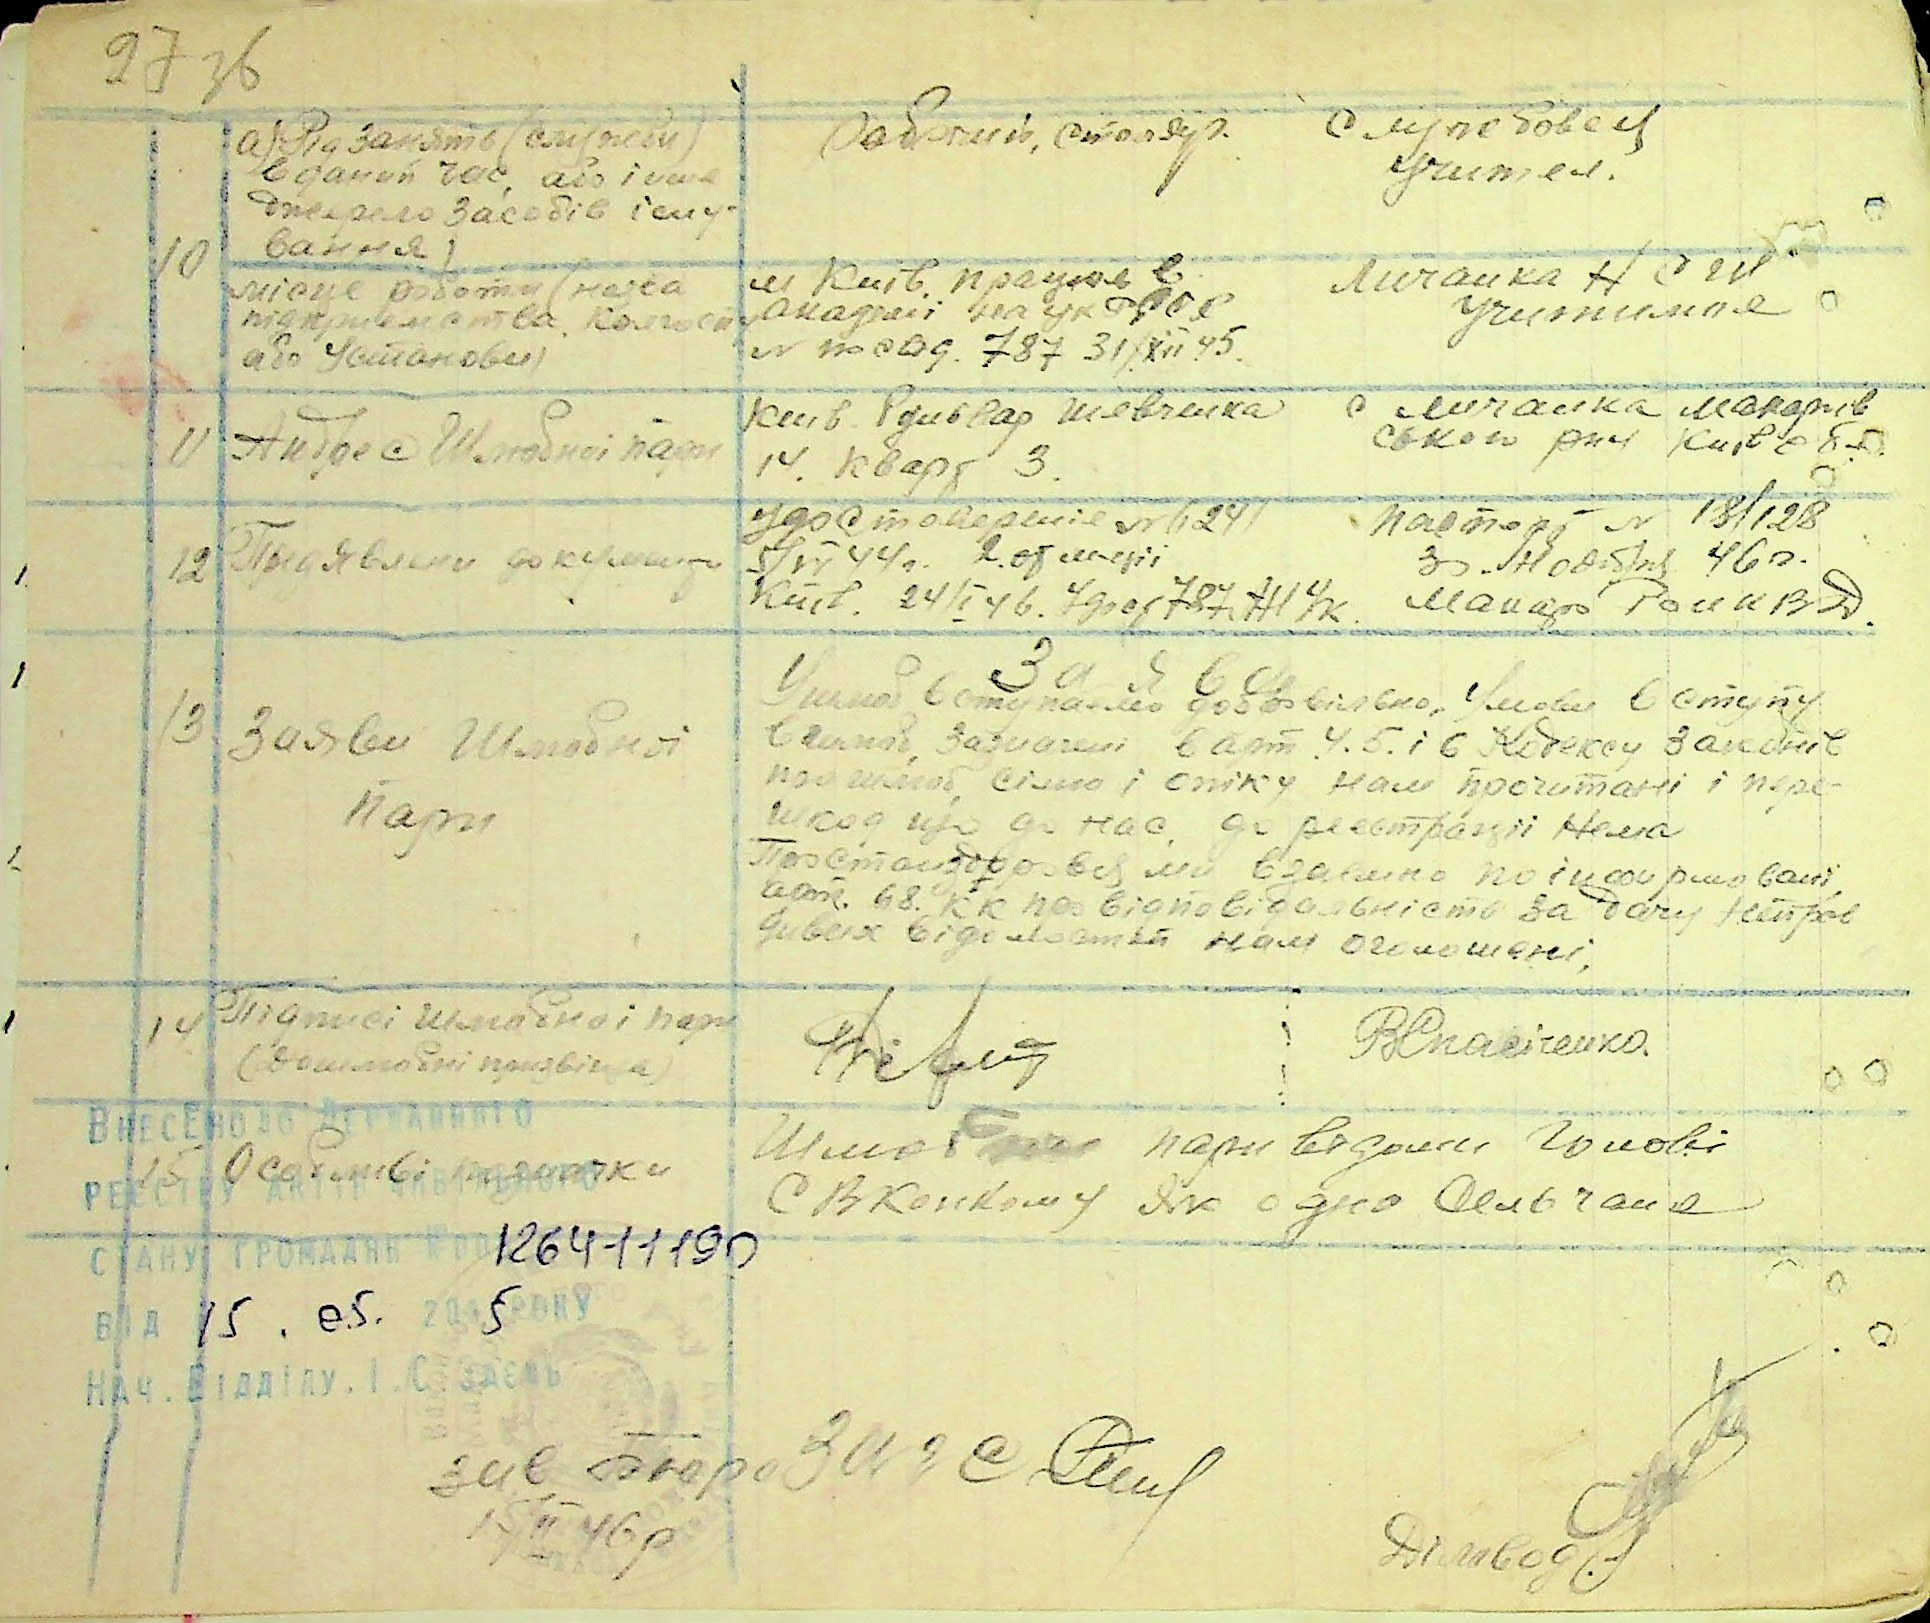 27 зв
а) Рід занять (служби)
в даний час, або інше
джерело засобів існу-
вання)
Робочий, столяр.
Служебовец
Учител.
10
місце роботи (назва
підприємства, колгоспу
або Установи)
м Київ. працює в
Академії наук
N посад. 787 31/XII 45.
Личанка Н С Ш
учителька
11
Адрес Шлюбної пари
Київ. Бульвар Шевченка
14. Кварт 3.
с Личанка Макарів
ського р-ну Київ обл.
12
Предявлени документи
Удостоверение N 1241
5/VI 44 г. 2. от міліції
Київ. 24/I 46. Удост 787
паспорт N 18/128
30 Ноября 46 г.
Макаро РонКВД.
13
Заяви Шлюбної
пари
Заява
У шлюб вступаємо добровільно, Умови вступу
в шлюб, зазначені в арт. 4. 5. і 6 Кодексу законів
про шлюб, сімю і опіку нам прочитані і пере-
шкод що до нас, до реєстрації нема
Про стан здоровья ми взаємно поінформовані,
арт. 68. КК про відповідальність за дачу неправ
дивих відомостей нам оголошені,
14
Підписі шлюбної пари
(дошлюбні призвіща)
ВСпасіченко.
15 Особливі помітки
Шлюб пари відоми Голові
С ВКонкому як одно Сельчане
Внесено до Державного
реєстру актів цивільного
стану громадян 1264-11190
від 15. 05. 2005 року
Нач. Відділу. І. С
зав бюро Загс
II 46 р
Діловод